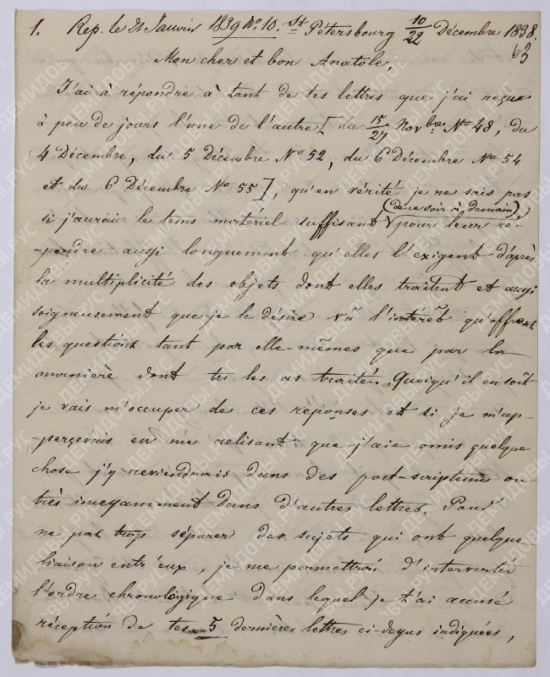 1. Rep. le 21 Janvier 1839 No. 10. St Pétersbourg 10/22 Décembre 1838.
63
Mon cher et bon Anatole,
J'ai à répondre à tant de tes lettres que j'ai reçues
à peu de jours l'une de l'autre [ du 15/27 Novbre No 48, du
4 Décembre, du 5 Décembre No 52, du 6 Décembre No 54
et du 6 Décembre No 55 ], qu'en vérité je ne sais pas
si j'aurai le tems matériel suffisant (de ce soir à demain) pour leur ré-
-pondre aussi longuement qu'elles l'exigent d'après
la multiplicité des objets dont elles traitent et aussi
soigneusement que je le désire vû l'intérêt qu'offrent
les questions tant par elle-mêmes que par la
manière dont tu les as traités. Quoiqu'il en soit
je vais m'occuper de ces réponses et si je m'ap-
-percevais en me relisant que j'aie omis quelque
chose j'y reviendrais dans des post-scriptums ou
très incessamment dans d'autres lettres. Pour
ne pas trop séparer des sujets qui ont quelque
liaison entr'eux, je me permettrai d'intervertir
l'ordre chronologique dans lequel je t'ai accusé
réception de tes 5 dernières lettres ci-dessus indiquées,
ДЕМИДОВЫ.РУС